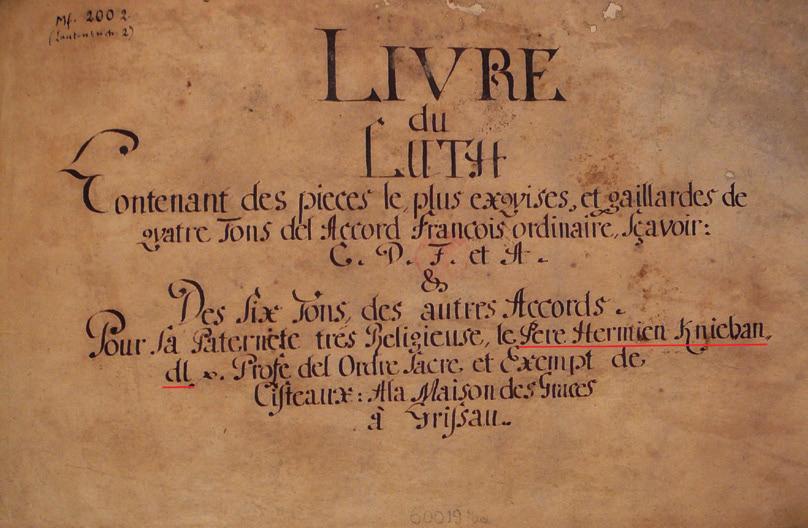 Mf. 2002
LIVRE
du
LUTH
Contenant des pieces le plus exqvises, et gaillardes de
qvatre Tons del Accord François ordinaire, Sçavoir:
C. D. F. et A.
&
Des Six Tons, des autres Accords.
Pour Sa Paternète trés Religieuse, le Pere Hermien Knieban,
dl Profe del Ordre Sacre et Exempt de
Cisteaux: A la Maison des Graces
à Grissau.
60019